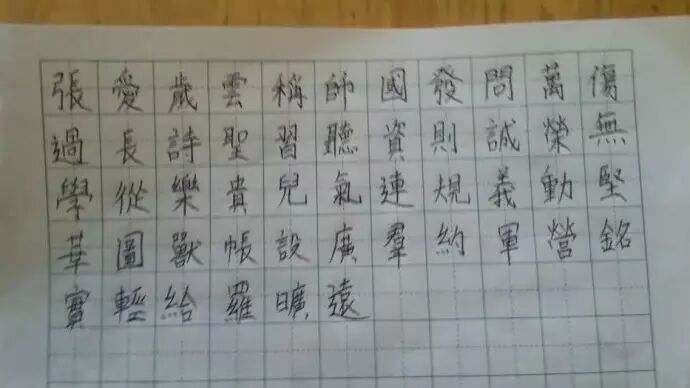 張愛歲雲稱師國發問萬傷
過長詩聖習聽資則誠榮無
學從樂貴兒氣連規義動堅
華圖獸帳設廣羣約軍營銘
實輕給羅曠遠